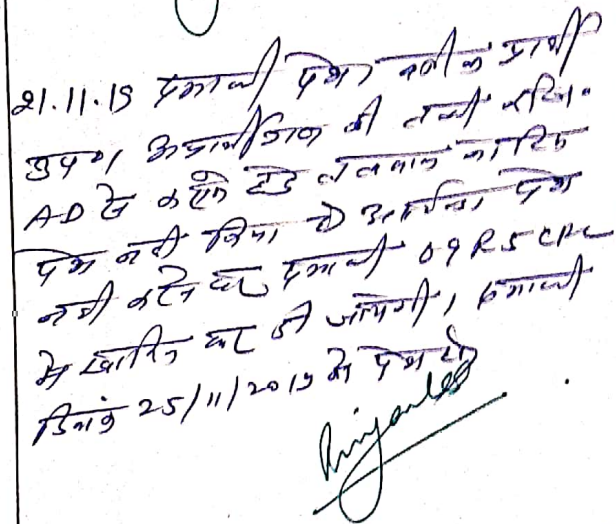 21.11.19 पत्रावली पेश। वकील प्रार्थी
उप०। अप्रार्थीगण की तलबी रजि०
AD से कराने हेतु तलवाना नोटिस
पेश नहीं किया है। आईन्दा पेश
नहीं करने पर पत्रावली O9 R5 CPC
में खारिज कर दी जायेगी। पत्रावली
दिनांक 25/11/2019 को पेश हो